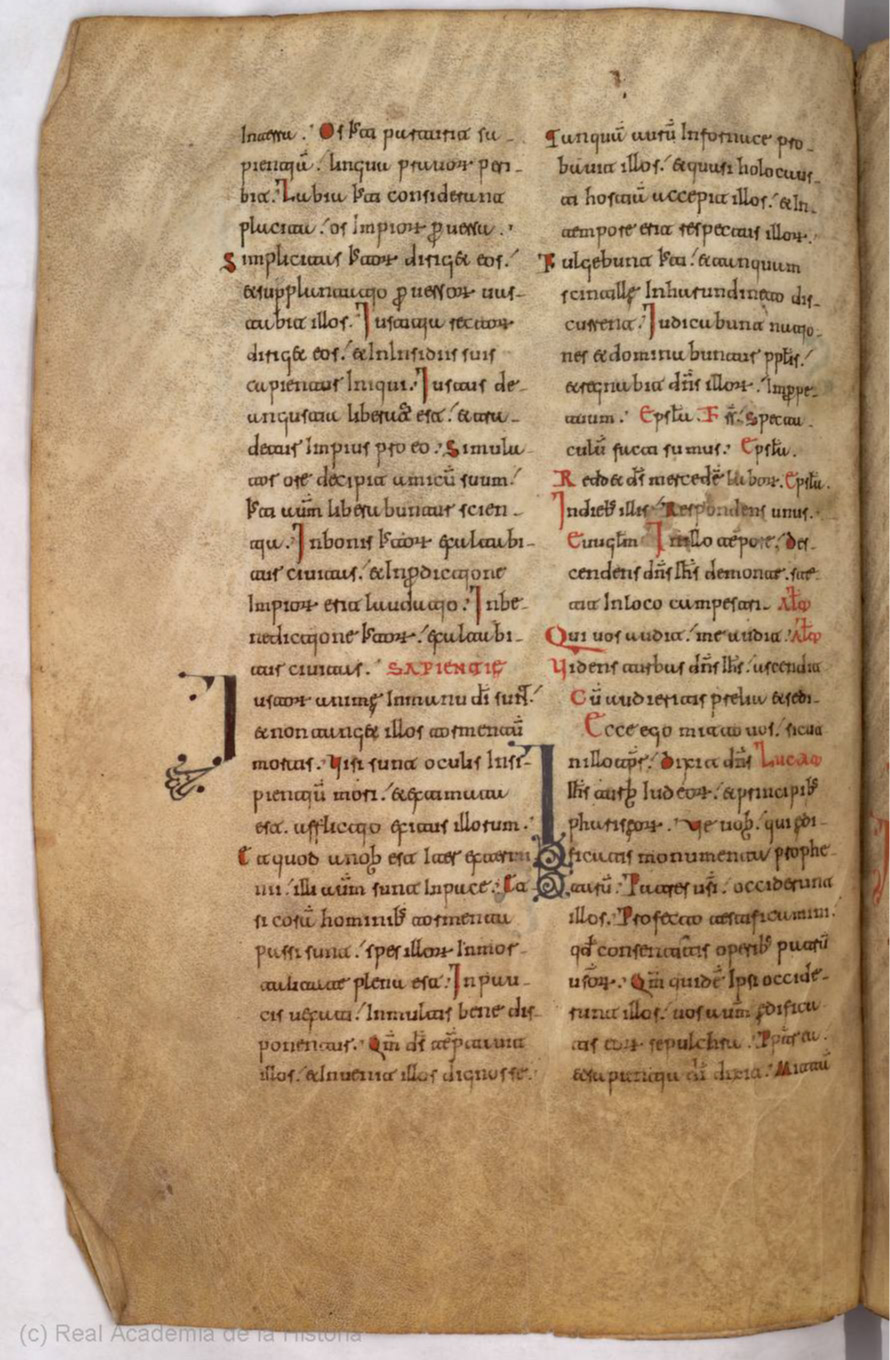 In terra. Os iusti parturit sa-
pientiā. lingua prauoꝝ peri-
bit. Labia iusti considerant
placita. os Impioꝝ ꝑuersa.
Simplicitas iustoꝝ diriget eos.
& supplantatio ꝑuersoꝝ uas-
tabit illos. Iustitia rectoꝝ
diriget eos. & In Insidiis suis
capientur Iniqui. Iustus de
angustia liberat᷒ est. & tra-
detur Impius pro eo. Simula-
tor ore decipit amicū suum.
iusti autm̄ liberabuntur scien-
tia. In bonis iustoꝝ exultabi-
tur ciuitas. & In ꝑditione
Impioꝝ erit laudatio. In be-
nedictione iustoꝝ exaltabi-
tur ciuitas. SAPIENTIĘ
Iustoꝝ animę In manu dī sunt.
& non tanget illos tormentū
mortis. Uisi sunt oculis Insi-
pientiū mori. & extimata
est afflictio exitus illorum.
Et quod a nob᷒ est Iter extermi
nii. illi autm̄ sunt In pace. Et
si corā hominib᷒ tormenta
passi sunt. spes illoꝝ Inmor-
talitate plena est. In pau-
cis uexati. In multis bene dis-
ponentur. Qm̄ ds̄ temptauit
illos. & Inuenit illos dignos se.
Tanquā aurū In fornace pro-
bauit illos. & quasi holocaus-
ti hostiā accepit illos. & In
tempore erit respectus illoꝝ.
Fulgebunt iusti. & tanquam
scintillę In harundineto dis-
current. Iudicabunt natio-
nes & dominabuntur pp̄lis.
& regnabit dn̄s illoꝝ. In ꝑpe-
tuum. Epstła. Fr̄s. Spectacu
culū facti sumus. Epstła.
Reddet ds̄ mercedē laboꝝ. Epstła.
In dieb᷒ illis. Respondens unus.
Euuglm̄ In illo tēpore. des-
cendens dn̄s ihs̄ de monte. ste-
tit In loco campestri. Alt̄o
Qui uos audit. me audit. Alt̄o
Uidens turbas dn̄s ihs̄. ascendit
Cū audieritis prelia & sedi-
Ecce ego mitto uos. sicut
In illo tp̄r. Dixit dn̄s Lucam
ihs̄ turb᷒ Iudeoꝝ. & principib᷒
phariseoꝝ. Ue uob᷒. qui edi-
ficatis monumenta prophe-
tarū. Patres ur̄i. occiderunt
illos. Profecto testificamini.
qd̄ consentitis operib᷒ patrū
ur̄oꝝ. Qm̄ quidē Ipsi occide-
runt illos. uos autm̄ edifica-
tis eoꝝ sepulchra. Ppt̄erea
& sapientia dī dixit. Mittā